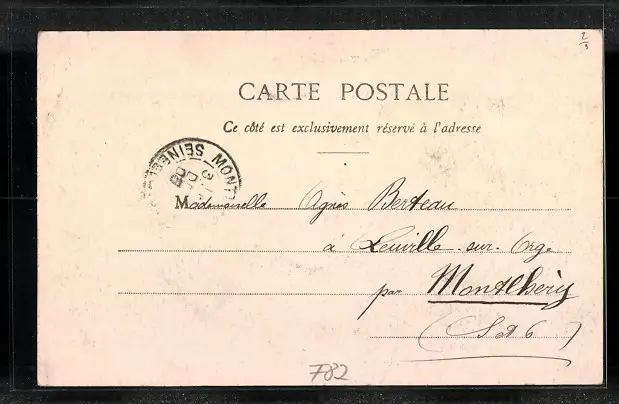 2/3
CARTE POSTALE
Ce côté est exclusivement réservé à l'adresse
SEINE MONT
Mademoiselle Agnès Berteau
à Leuville-sur-Orge
par Montlhéry
(S et O)
782